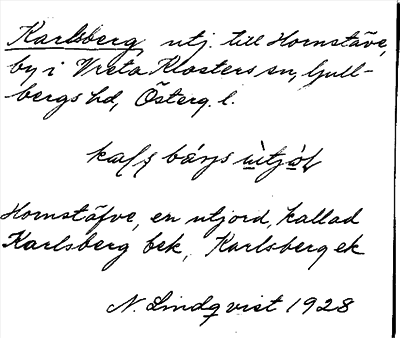 Karlsberg utj. till Hornstäve,
by i Vreta Klosters sn, Gull-
bergs hd, Österg. l.
bárjs ùtjòḷ
Hornstäfve, en utjord, kallad
Karlsberg bek, Karlsberg ek
N. Lindqvist 1928